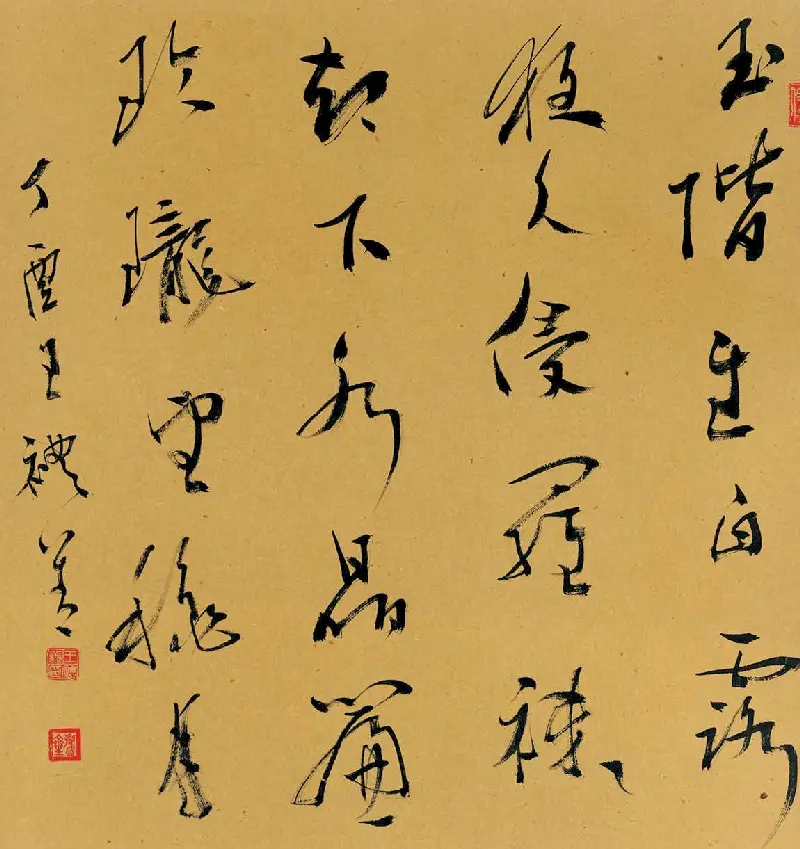 玉階生白露
夜久侵羅襪
却下水晶簾
玲瓏望秋月
丁酉王禮